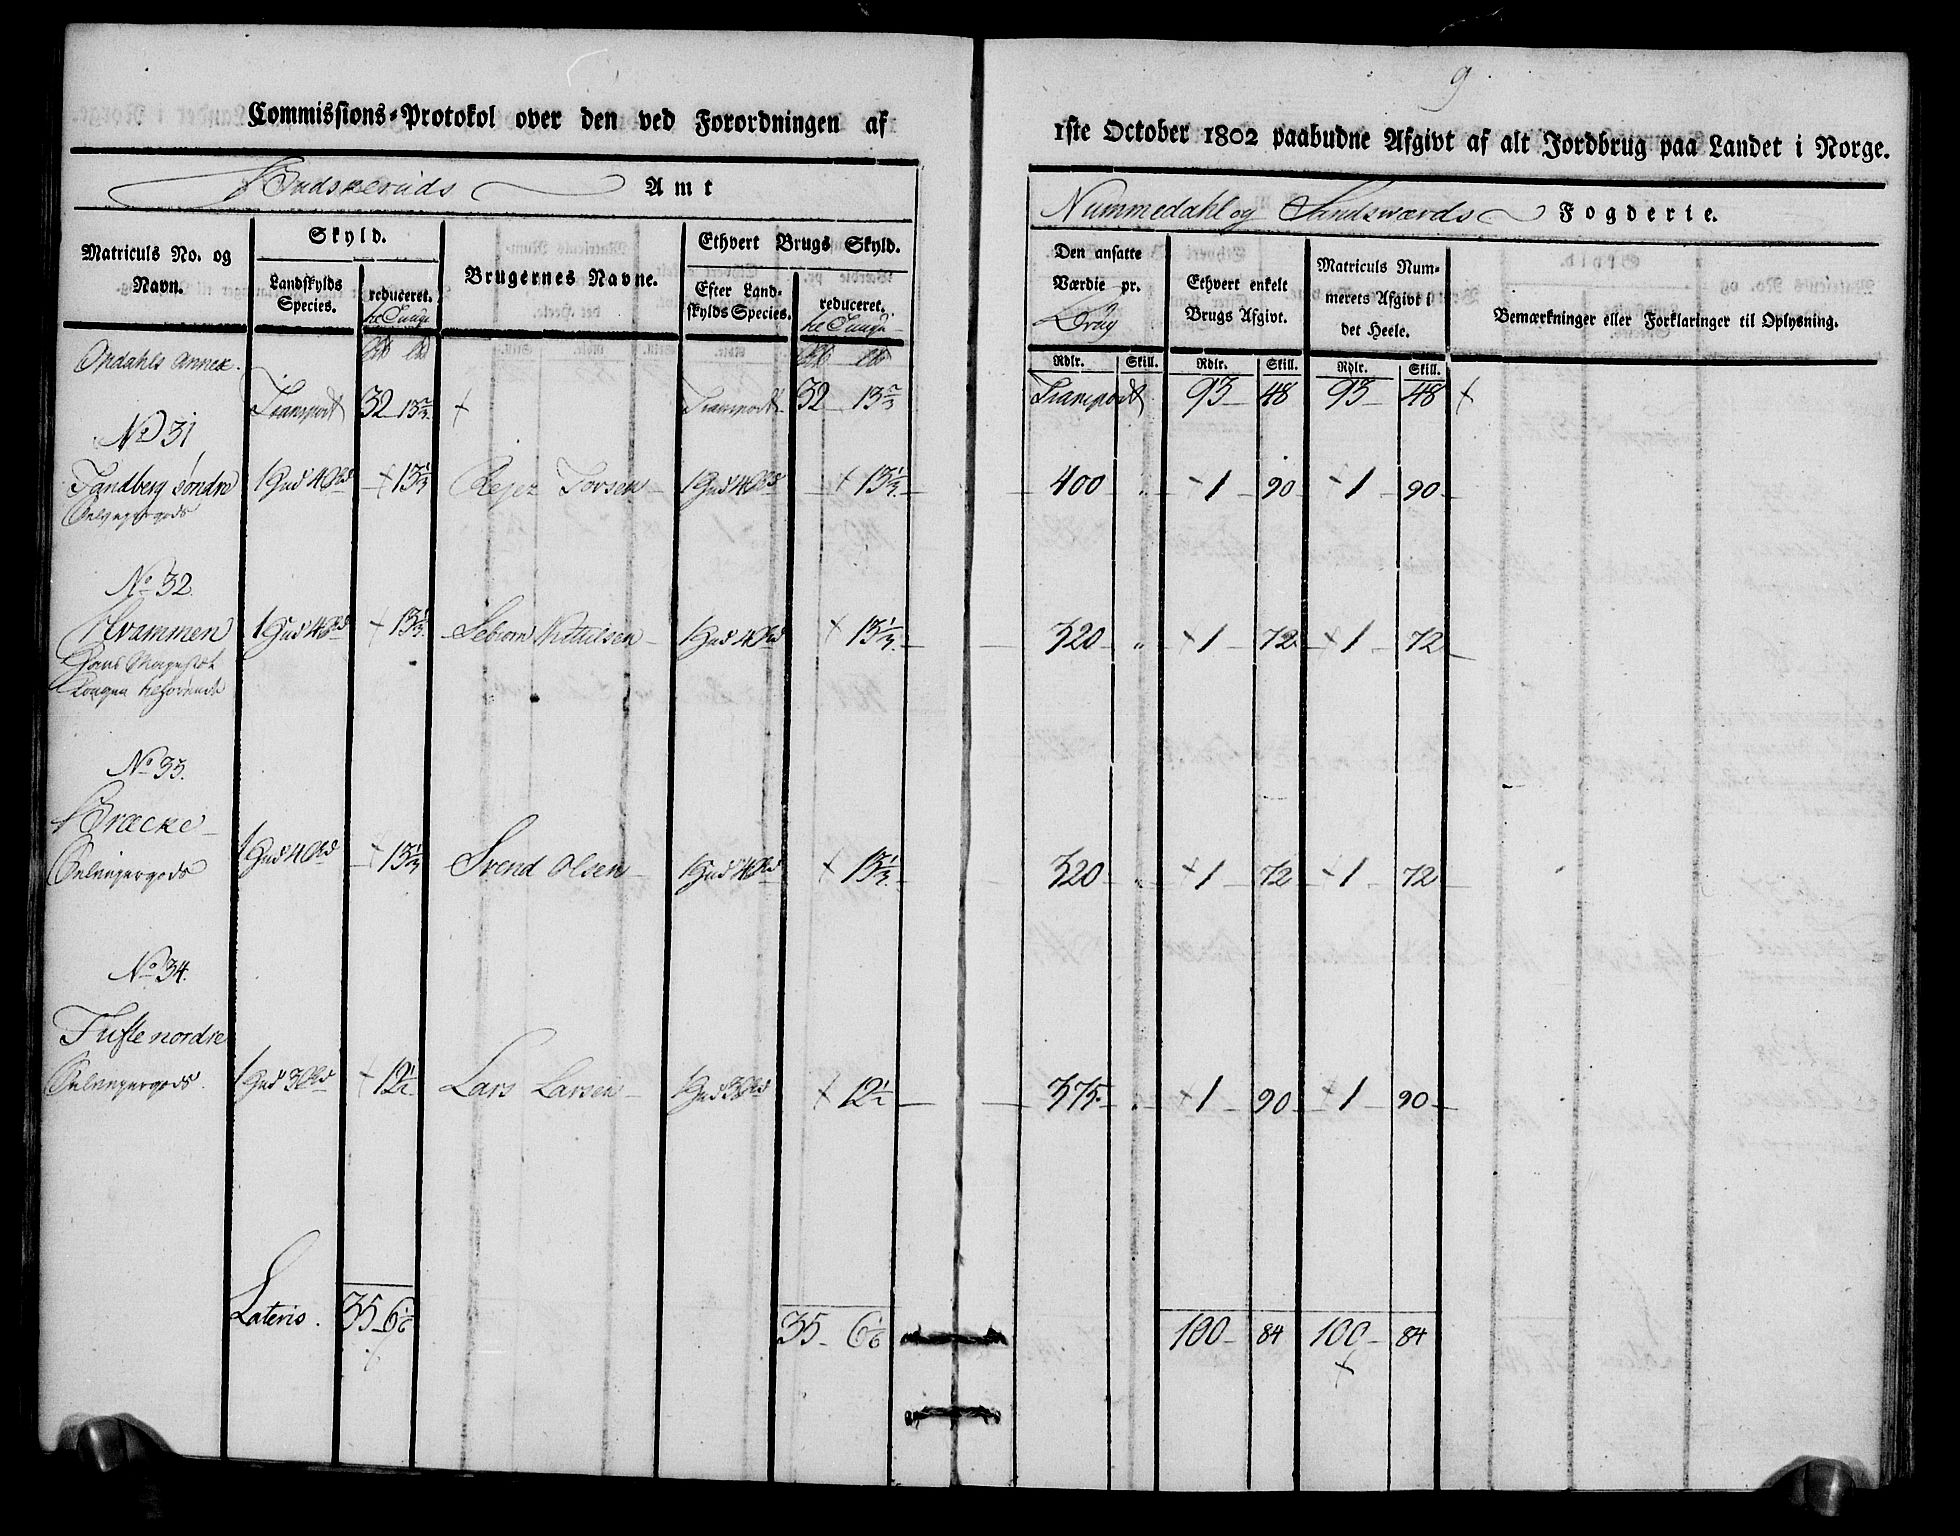 9
Commissions-Protokol over den ved Forordningen af
1ste October 1802 paabudne Afgivt af alt Jordbrug paa Landet i Norge.
Budskeruds Amt
Nummedahl og Sandsværds Fogderie.
Matriculs No. og Navn.
Skyld.
Landskylds Species.
reduceret.
Brugernes Navne.
Ethvert Brugs Skyld.
Efter Landskylds Species.
reduceret.
Den ansatte Værdie pr.
Rdlr. Skill.
Ethvert enkelt Brugs Afgivt.
Rdlr. Skill.
Matriculs Nummerets Afgivt i det Heele.
Rdlr. Skill.
Bemærkninger eller Forklaringer til Oplysning.
Opdahls Annex.
Transport 32 13 2/3 Transport 32 13 2/3 Transport 93 48 93 48
No 31
Tandberg søndre 1 Hud 4 13 1/3 Torsen 1 Hud 4 13 1/3 400 " 1 90 1 90
Selveyergods
No 32.
Hvammen 1 Hud 4 13 1/3 Kittilsen 1 Hud 4 13 1/3 320 " 1 72 1 72
Hans Mayestæt
Kongen tilhørende
No 33.
Bræcke
Selveyergods 1 Hud 4 13 1/3 Svend Olsen 1 Hud 4 13 1/3 320 " 1 72 1 72
No 34.
Tufte nordre
Selveyergods. 1 Hud 3 12 1/2 Lars Larsen 1 Hud 3 12 1/2 375 " 1 90 1 90
Lateris. 35 6 1/6 35 6 1/6 100 84 100 84